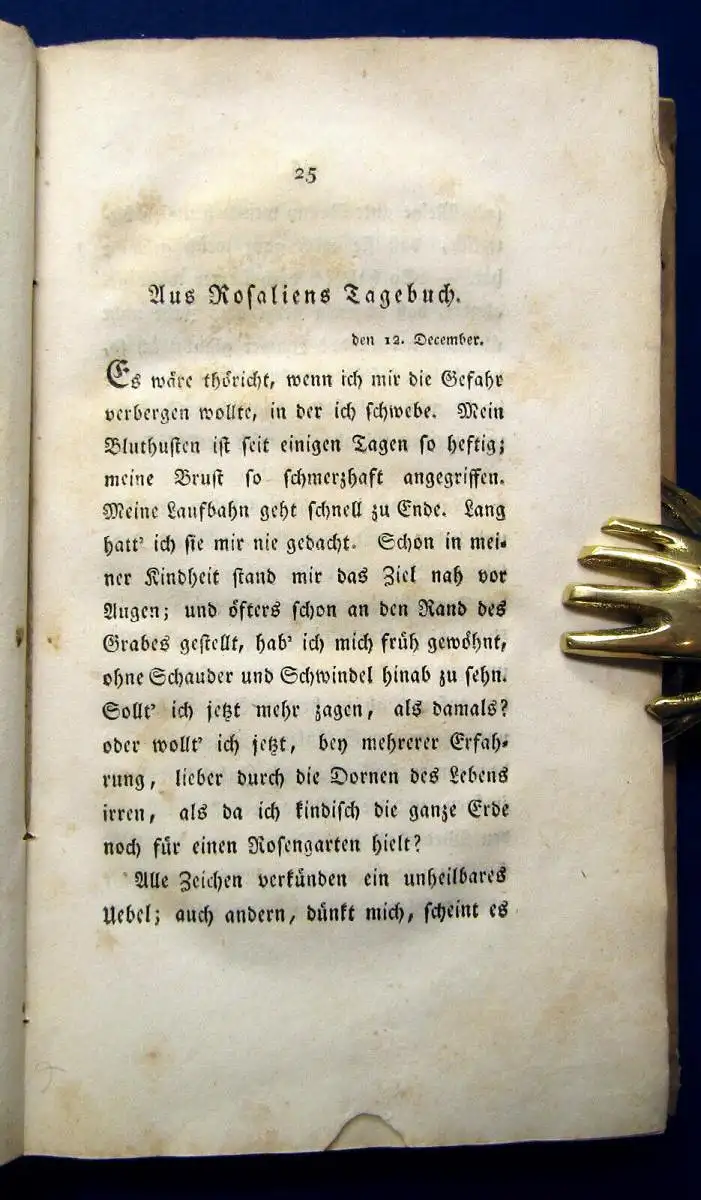 25
Aus Rosaliens Tagebuch.
den 12. December.
Es wäre thöricht, wenn ich mir die Gefahr
verbergen wollte, in der ich schwebe. Mein
Bluthusten ist seit einigen Tagen so heftig;
meine Brust so schmerzhaft angegriffen.
Meine Laufbahn geht schnell zu Ende. Lang
hatt' ich sie mir nie gedacht. Schon in mei-
ner Kindheit stand mir das Ziel nah vor
Augen; und öfters schon an den Rand des
Grabes gestellt, hab' ich mich früh gewöhnt,
ohne Schauder und Schwindel hinab zu sehn.
Sollt' ich jetzt mehr zagen, als damals?
oder wollt' ich jetzt, bey mehrerer Erfah-
rung, lieber durch die Dornen des Lebens
irren, als da ich kindisch die ganze Erde
noch für einen Rosengarten hielt?
Alle Zeichen verkünden ein unheilbares
Uebel; auch andern, dünkt mich, scheint es